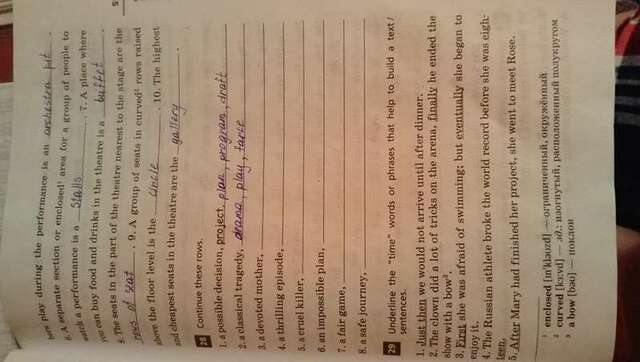 bers play during the performance is an orchestra pit.
6. A separate section or enclosed¹ area for a group of people to
watch a performance is a Stalls. 7. A place where
you can buy food and drinks in the theatre is a buffet.
8. The seats in the part of the theatre nearest to the stage are the
rows of seat. 9. A group of seats in curved² rows raised
above the floor level is the circle. 10. The highest
and cheapest seats in the theatre are the gallery.
28 Continue these rows.
1. a possible decision, project, plan, program, draft
2. a classical tragedy, drama, play, farce
3. a devoted mother,
4. a thrilling episode,
5. a cruel killer,
6. an impossible plan,
7. a fair game,
8. a safe journey,
29 Underline the "time" words or phrases that help to build a text/
sentences.
1. Just then we would not arrive until after dinner.
2. The clown did a lot of tricks on the arena, finally he ended the
show with a bow³.
3. First she was afraid of swimming; but eventually she began to
enjoy it.
4. The Russian athlete broke the world record before she was eigh-
teen.
5. After Mary had finished her project, she went to meet Rose.
¹ enclosed [ɪnˈkləʊzd] — ограниченный, окружённый
² curved [kɜːvd] — зд.: изогнутый, расположенный полукругом
³ a bow [baʊ] — поклон